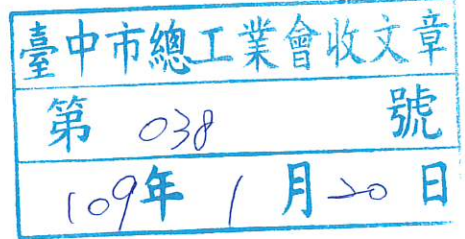 臺中市總工業會收文章
第 038 號
109年 1 月 20 日